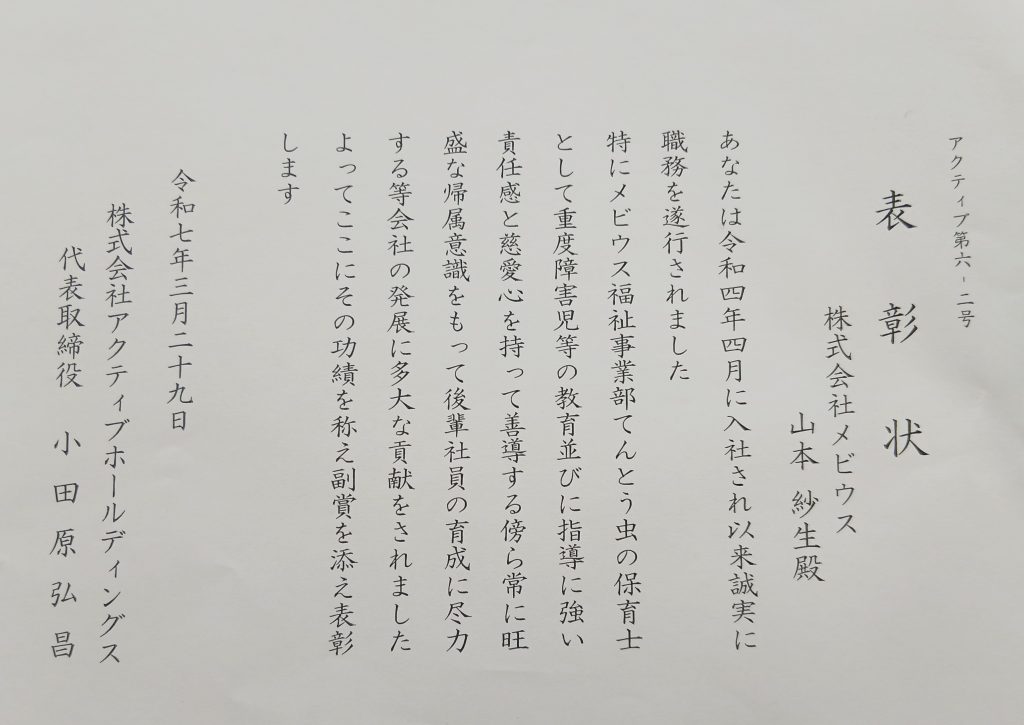 アクティブ第六-二号
表彰状
株式会社メビウス
山本 紗生殿
あなたは令和四年四月に入社され以来誠実に
職務を遂行されました
特にメビウス福祉事業部てんとう虫の保育士
として重度障害児等の教育並びに指導に強い
責任感と慈愛心を持って善導する傍ら常に旺
盛な帰属意識をもって後輩社員の育成に尽力
する等会社の発展に多大な貢献をされました
よってここにその功績を称え副賞を添え表彰
します
令和七年三月二十九日
株式会社アクティブホールディングス
代表取締役 小田原弘昌